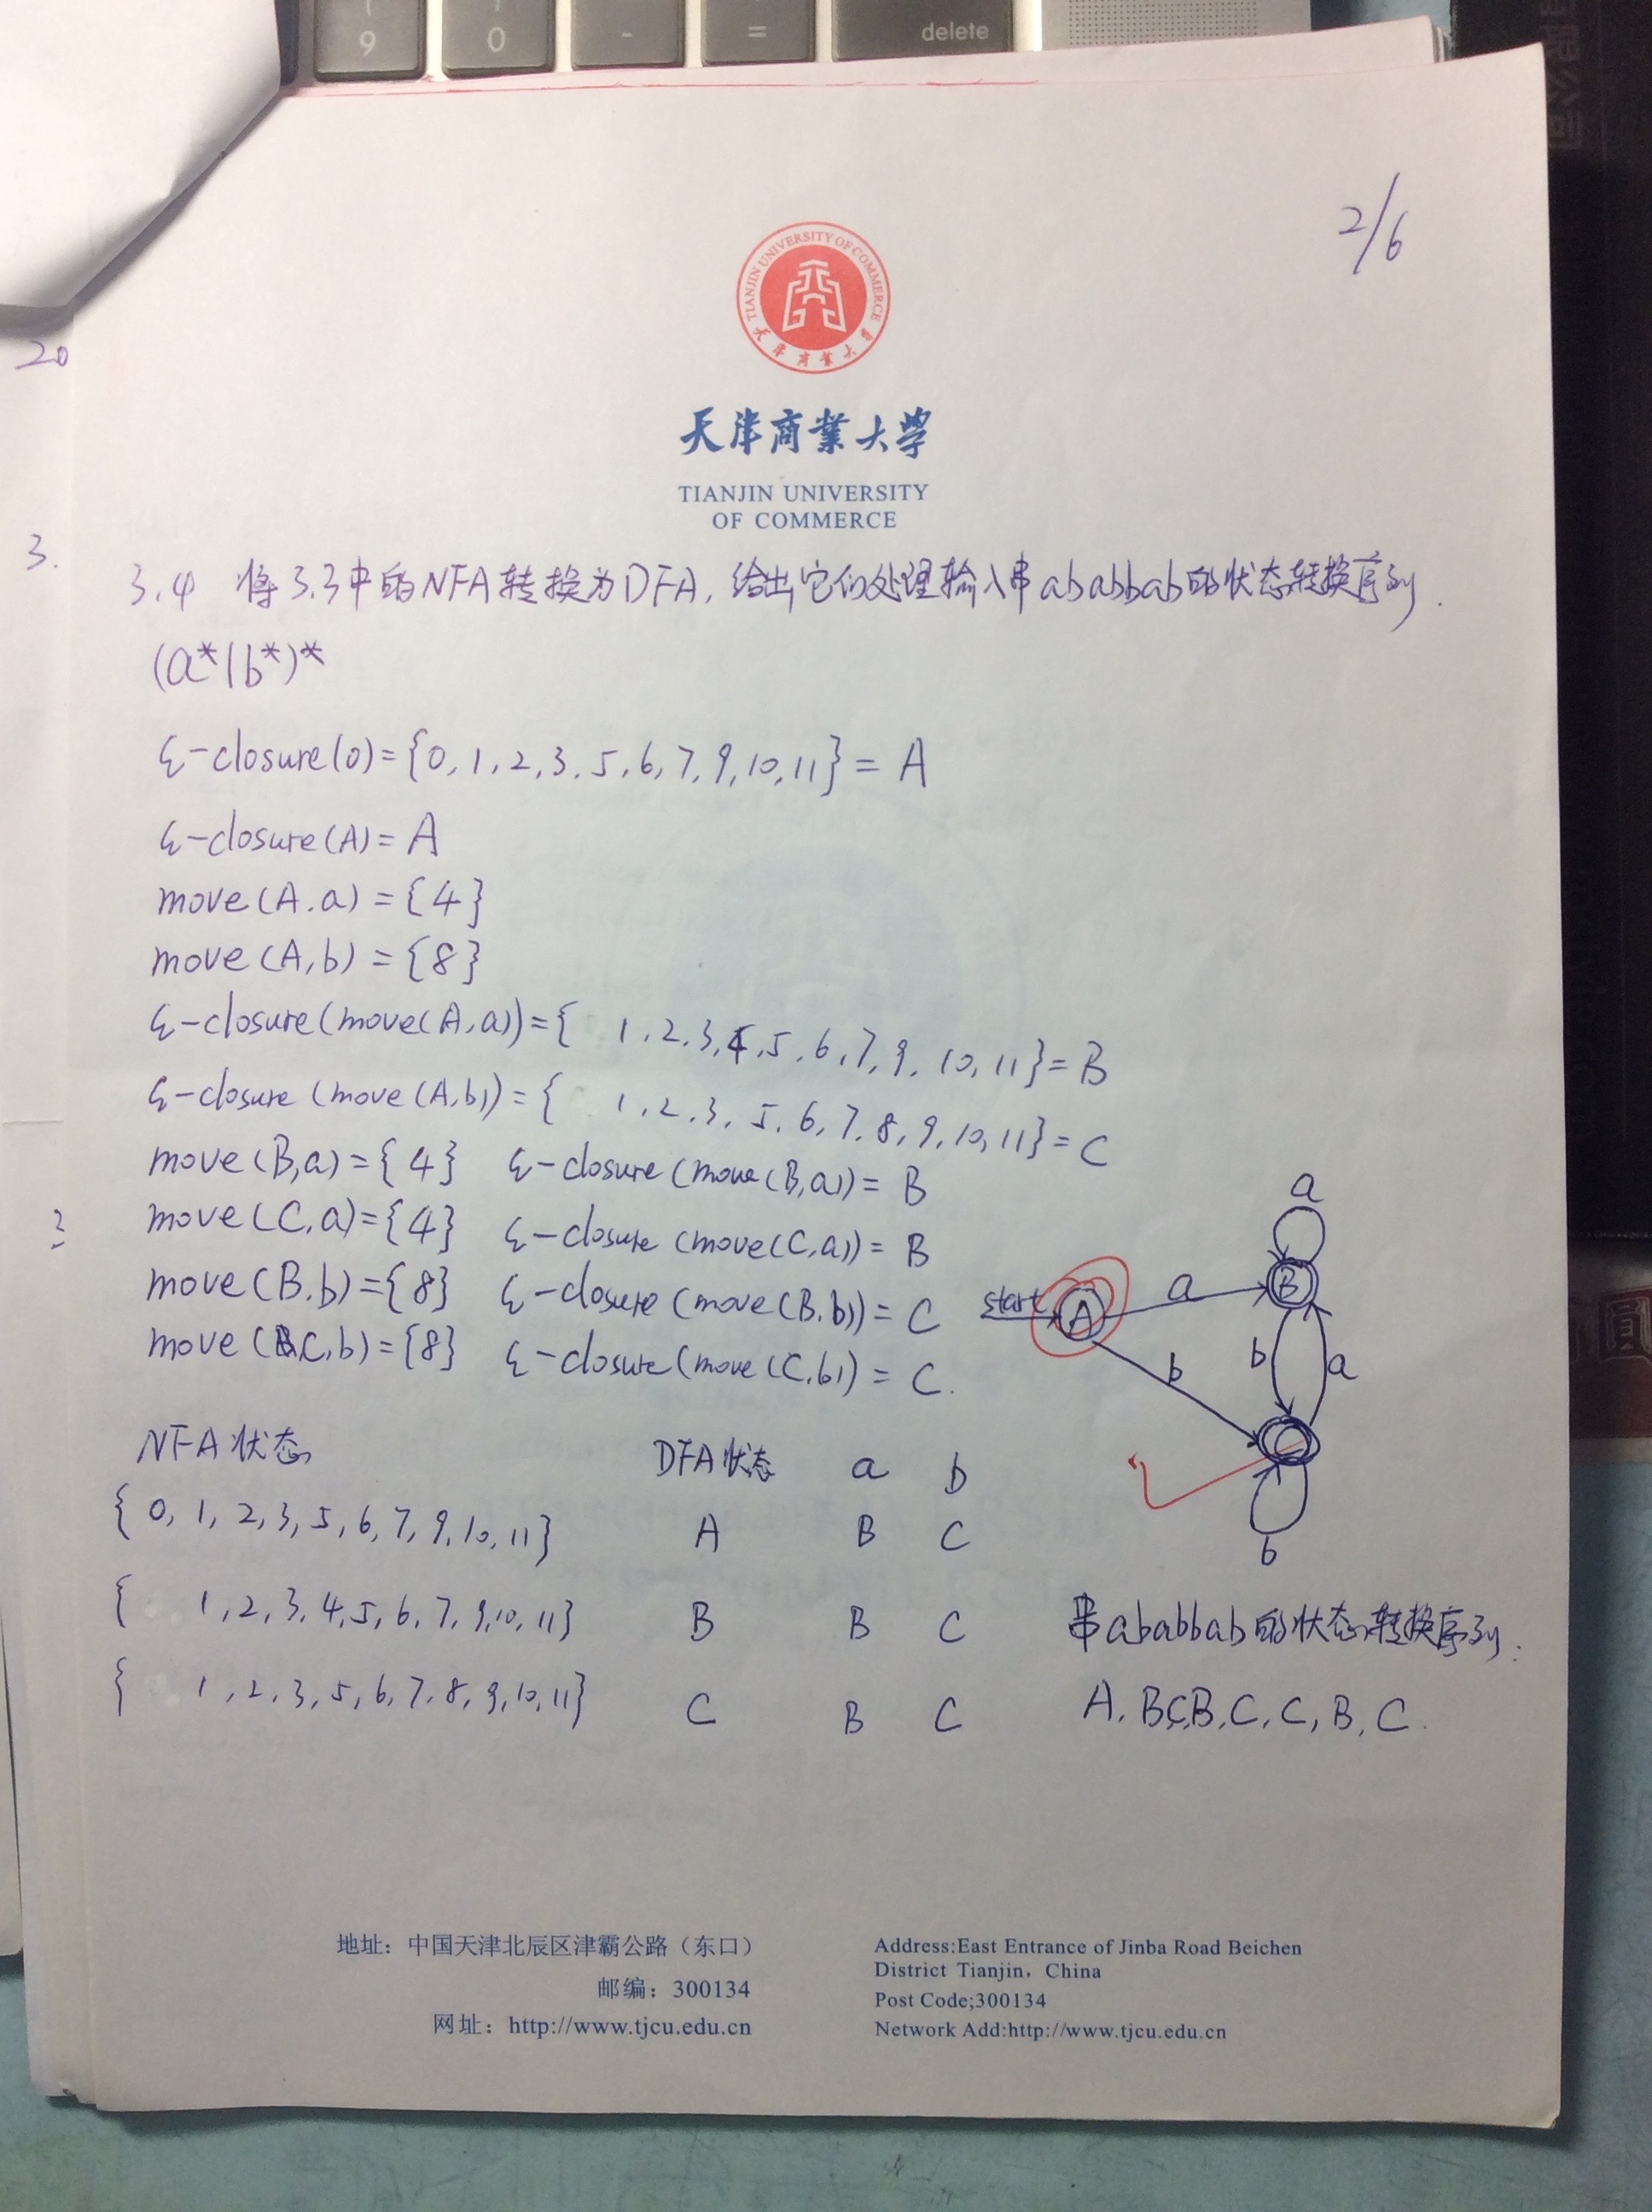 9
0
-
=
delete
2/6
20
TIANJIN UNIVERSITY OF COMMERCE
天津商業大学
天津商業大学
TIANJIN UNIVERSITY
OF COMMERCE
3.
3.4 将3.3中的NFA转换为DFA,给出它们处理输入串ababbab的状态转换序列.
(a*|b*)*
ε-closure(0)={0,1,2,3,5,6,7,9,10,11}=A
ε-closure(A)=A
move(A.a)={4}
move(A,b)={8}
ε-closure(move(A,a))={ 1,2,3,4,5,6,7,9,10,11}=B
ε-closure(move(A,b))={ 1,2,3,5,6,7,8,9,10,11}=C
move(B,a)={4} ε-closure(move(B,a))=B
move(C,a)={4} ε-closure(move(C,a))=B
move(B.b)={8} ε-closure(move(B.b))=C
move(C,b)={8} ε-closure(move(C,b))=C.
a
start A a B
b b a
b
NFA状态 DFA状态 a b
{0,1,2,3,5,6,7,9,10,11} A B C
{ 1,2,3,4,5,6,7,9,10,11} B B C
{ 1,2,3,5,6,7,8,9,10,11} C B C
串ababbab的状态转换序列:
A,B,C,B,C,C,B,C.
地址：中国天津北辰区津霸公路（东口）
邮编：300134
网址：http://www.tjcu.edu.cn
Address:East Entrance of Jinba Road Beichen
District Tianjin，China
Post Code;300134
Network Add:http://www.tjcu.edu.cn